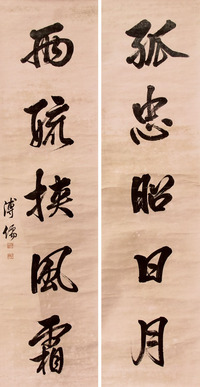 孤忠昭日月
両疏挟風霜
溥儒